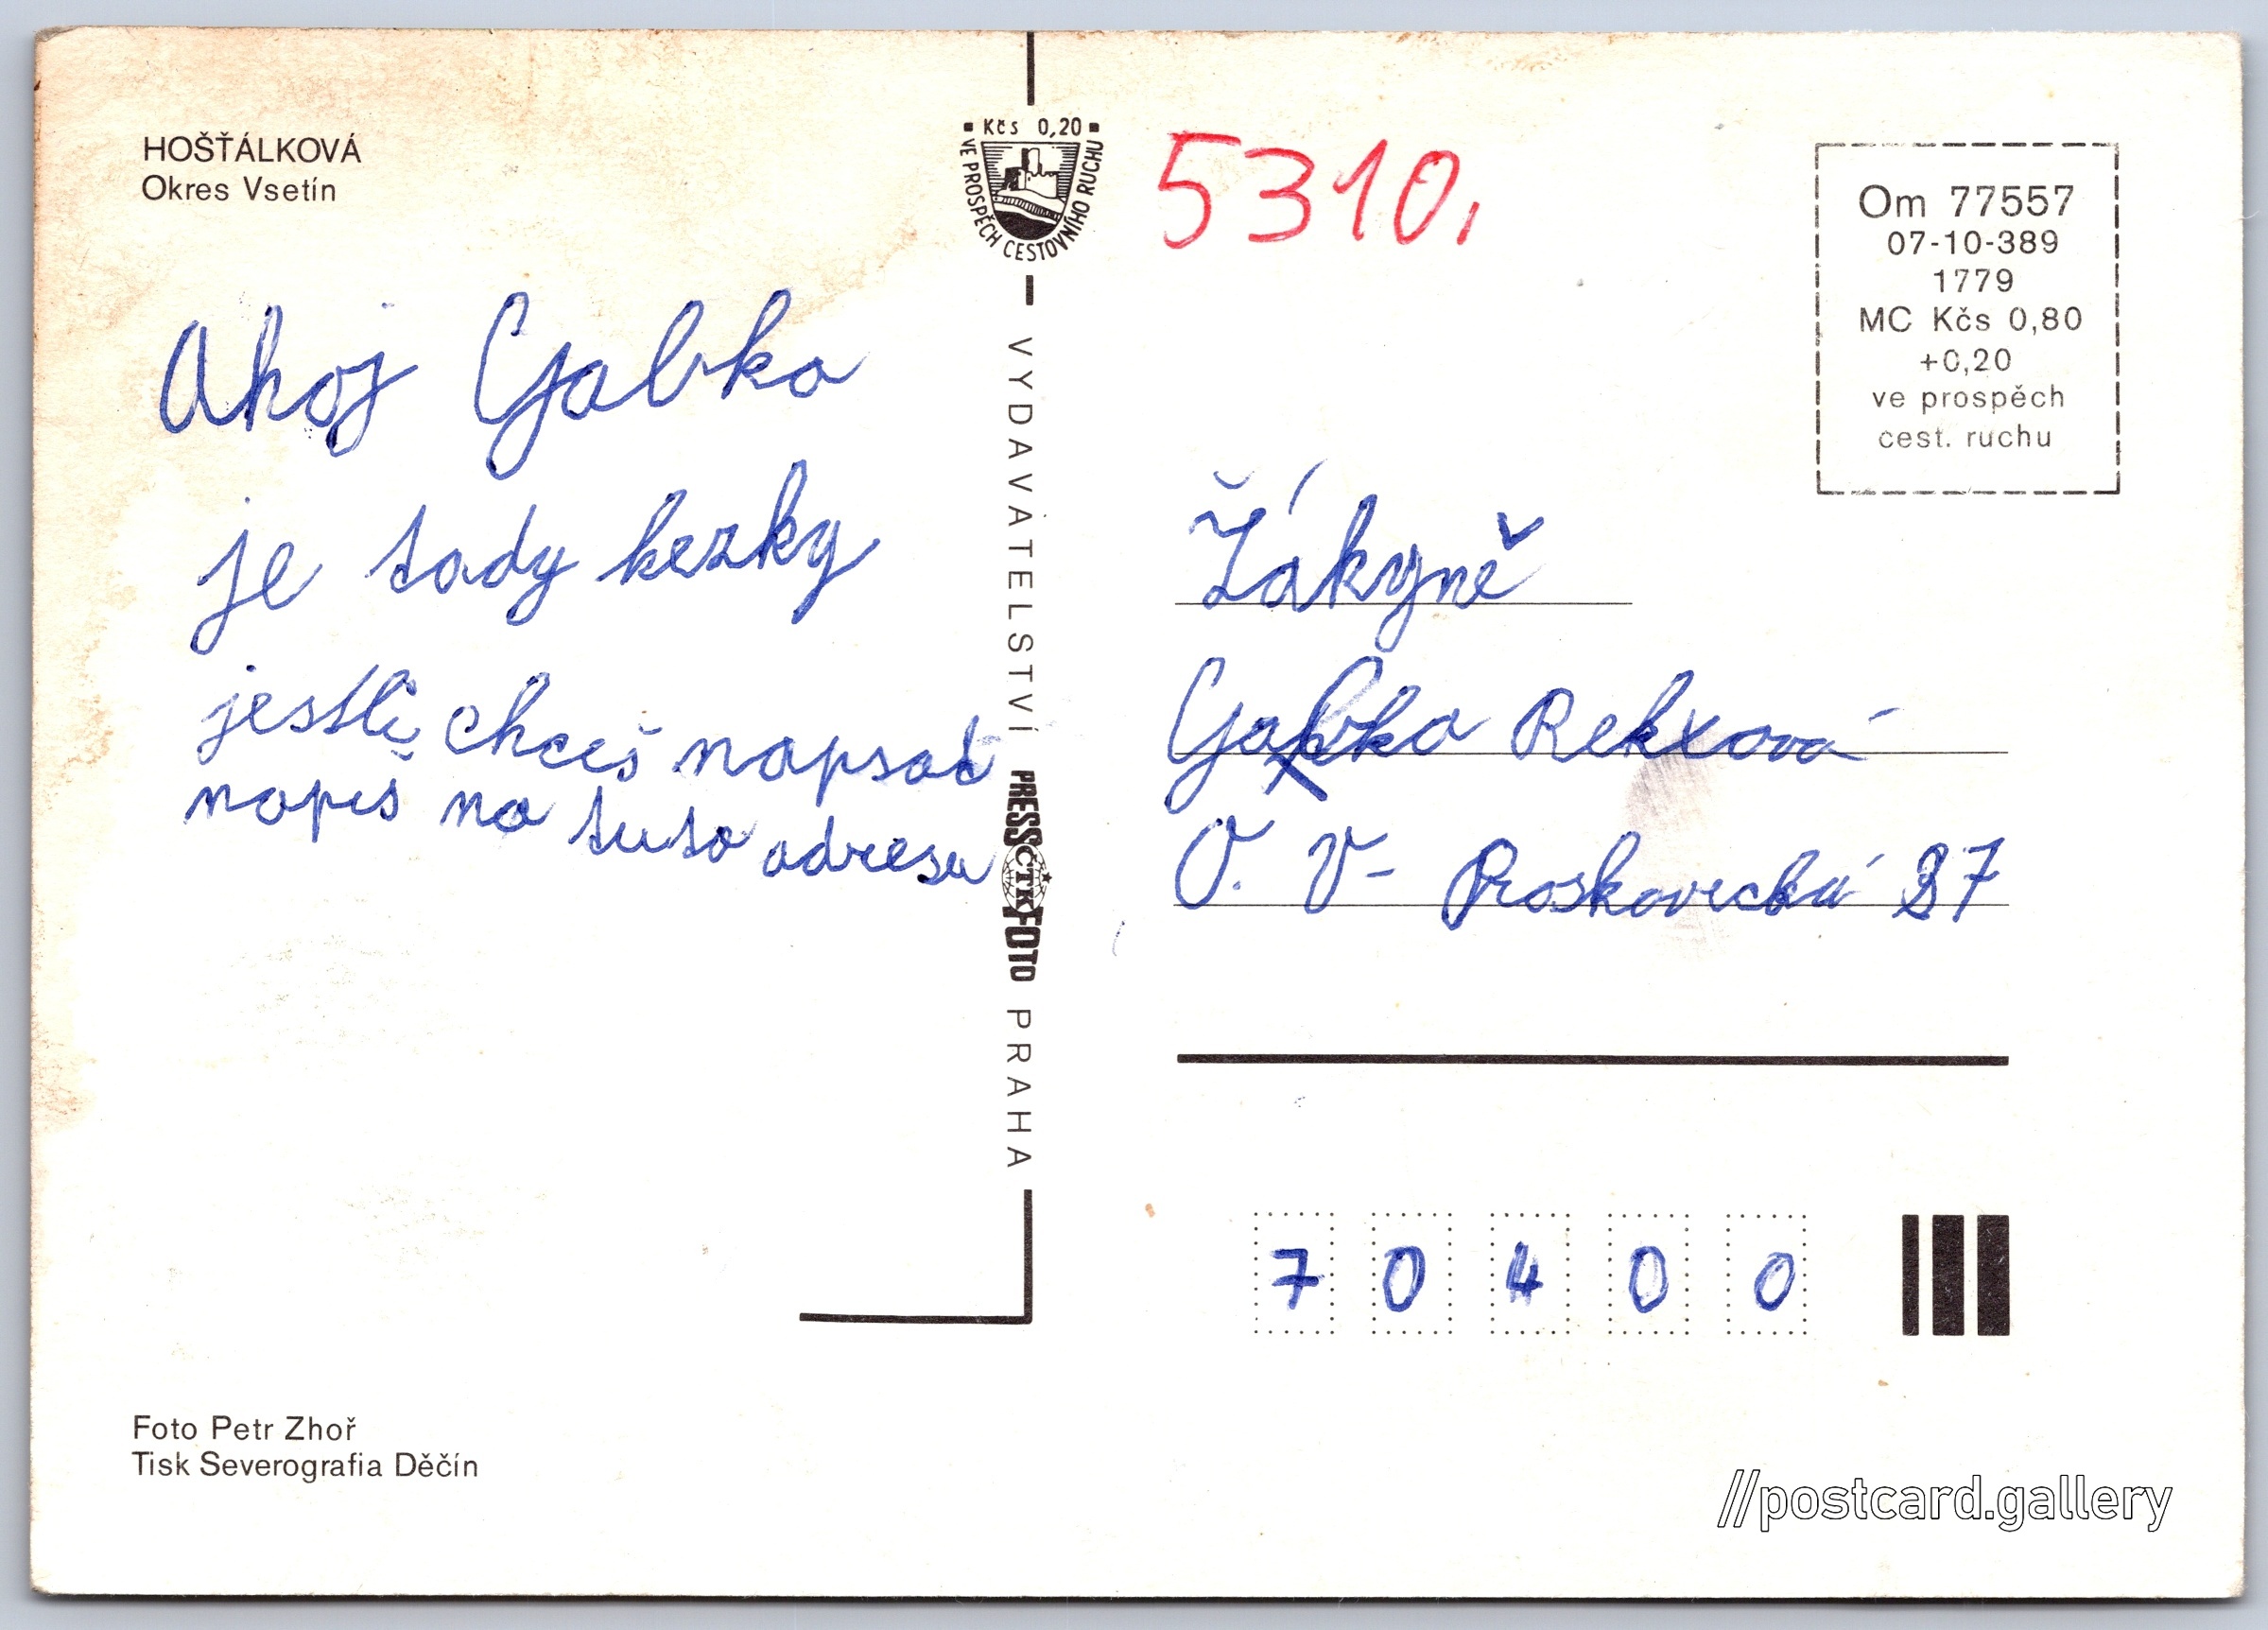 HOŠŤÁLKOVÁ
Okres Vsetín
Ahoj Gabka
je tady hezky
jestli chceš napsat
napiš na tuto adresu
Foto Petr Zhoř
Tisk Severografia Děčín
Kčs 0,20
VE PROSPĚCH CESTOVNÍHO RUCHU
VYDAVATELSTVÍ PRESSFOTO PRAHA
ČTK
5310,
Om 77557
07-10-389
1779
MC Kčs 0,80
+0,20
ve prospěch
cest. ruchu
Žákyně
Gabka
O. V- Proskovická 37
70400
//postcard.gallery